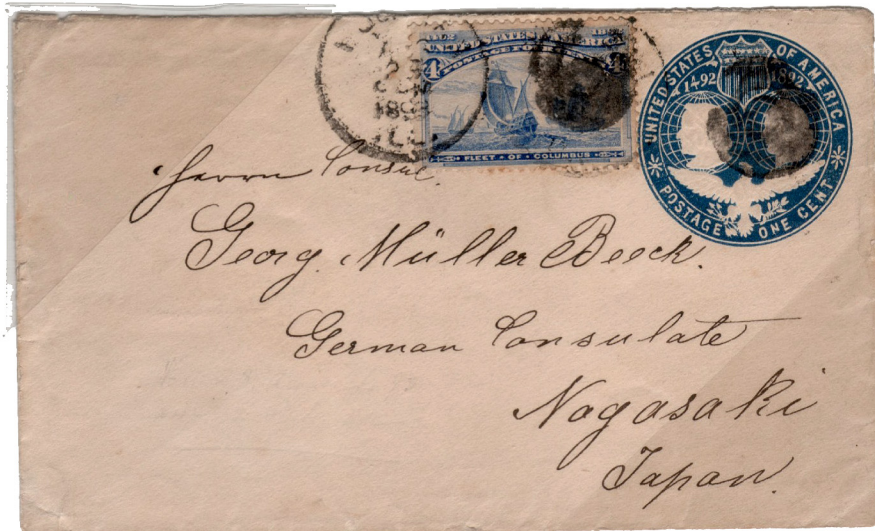 1492 UNITED STATES OF AMERICA
POSTAGE FOUR CENTS
4
FLEET OF COLUMBUS
ILL.
UNITED STATES OF AMERICA
1492 1892
POSTAGE ONE CENT
Herrn Consul.
Georg. Müller Beeck.
German Consulate
Nagasaki
Japan.